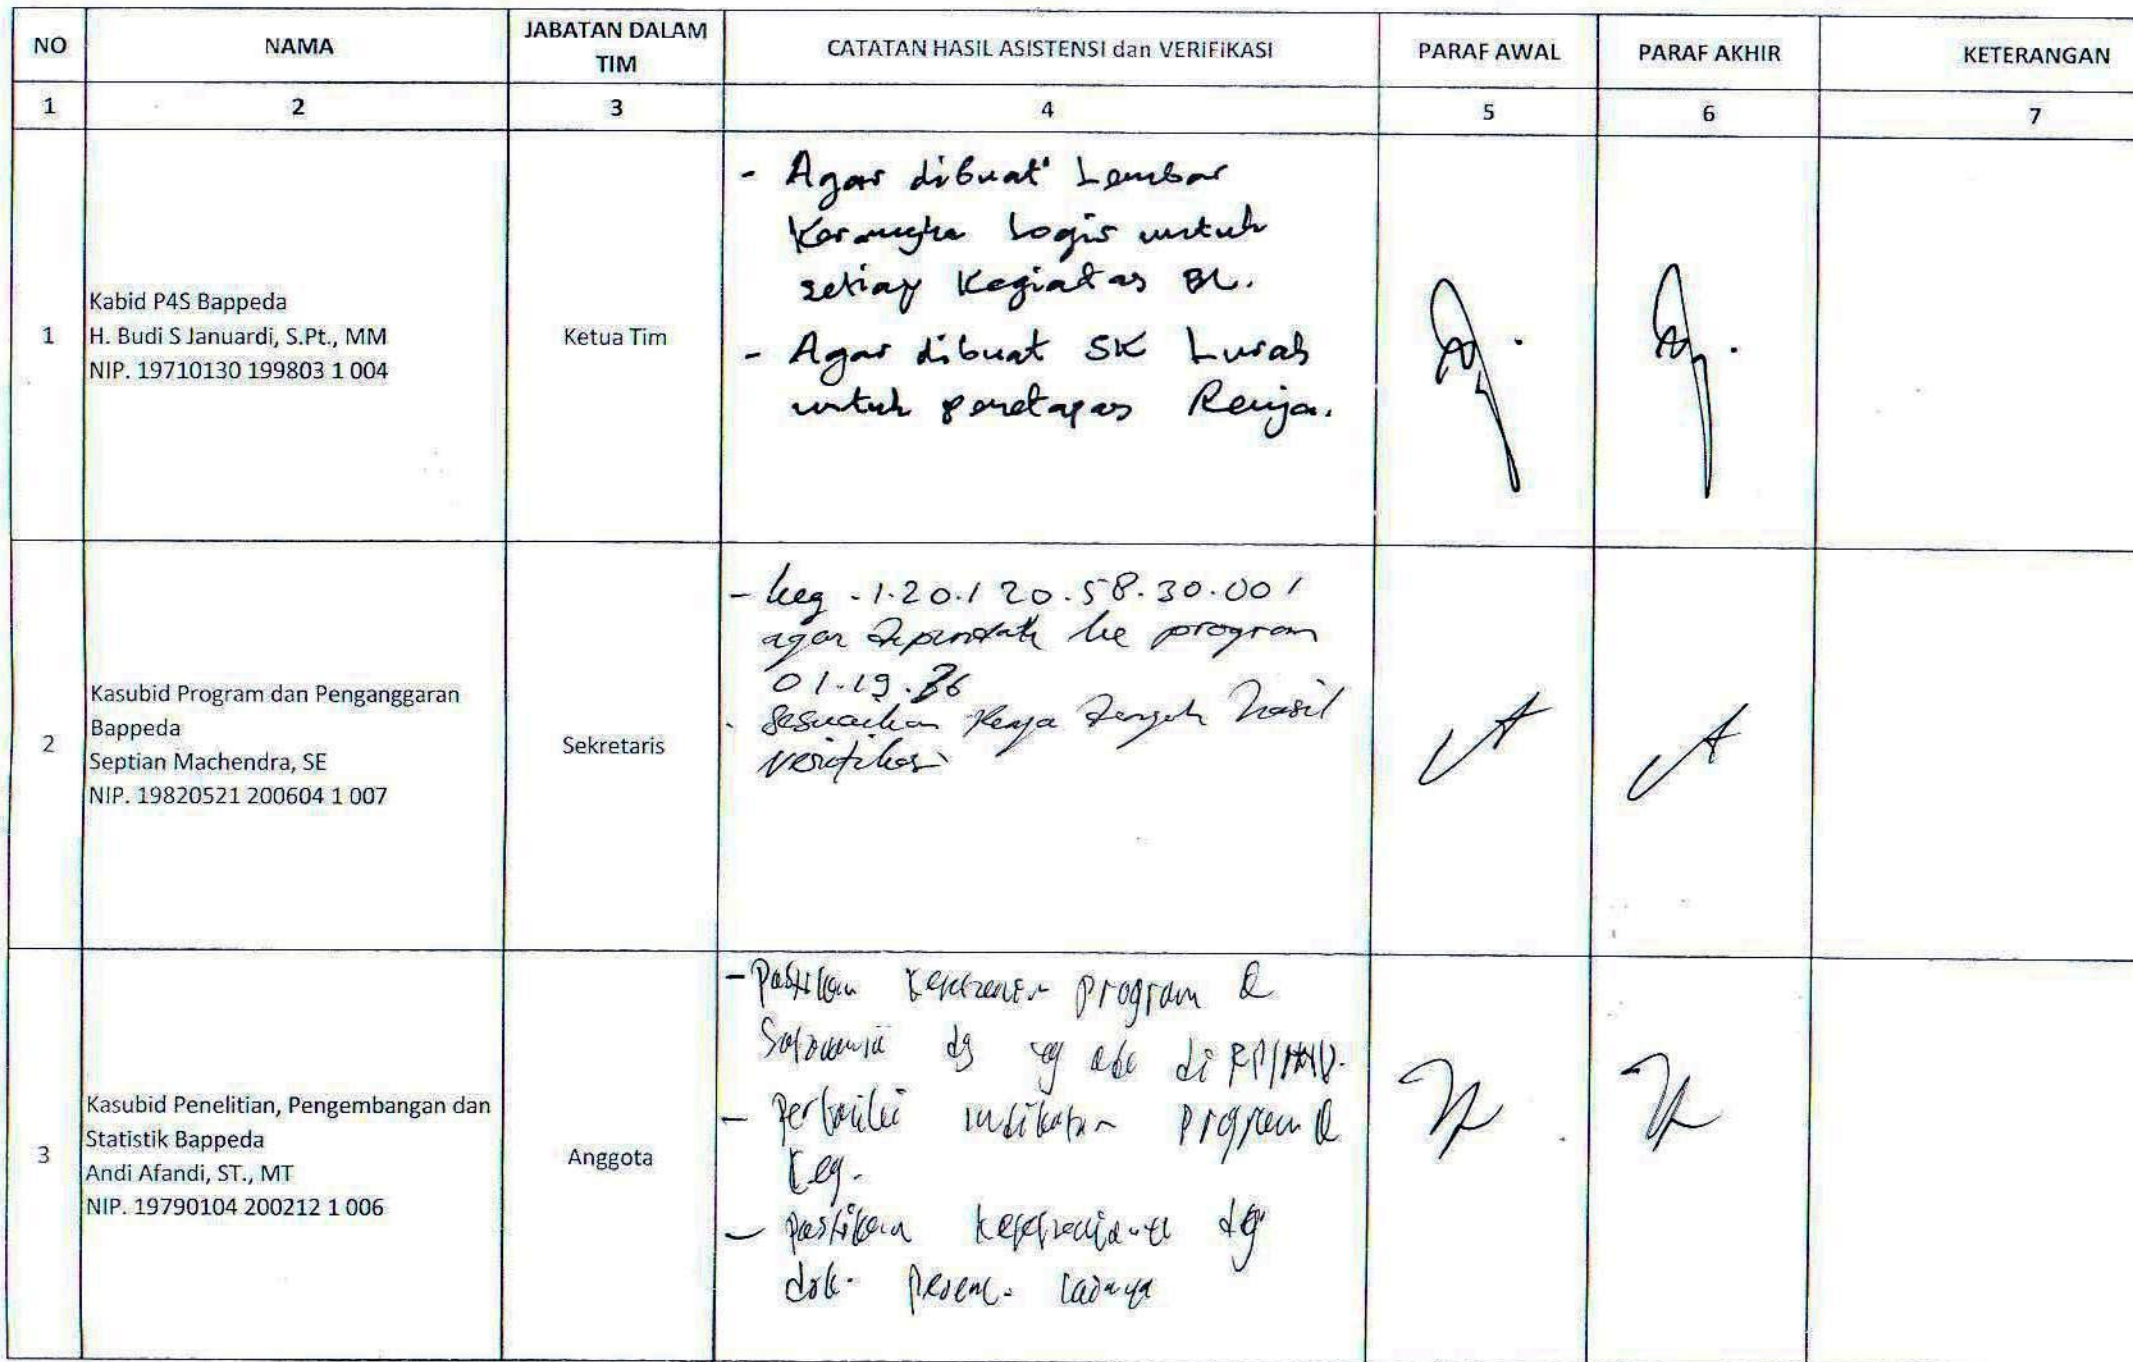 NO
NAMA
JABATAN DALAM
TIM
CATATAN HASIL ASISTENSI dan VERIFIKASI
PARAF AWAL
PARAF AKHIR
KETERANGAN
1
2
3
4
5
6
7
1
Kabid P4S Bappeda
H. Budi S Januardi, S.Pt., MM
NIP. 19710130 199803 1 004
Ketua Tim
- Agar dibuat Lembar
Kerangka Logis untuk
setiap Kegiatan BL.
- Agar dibuat SK Lurah
untuk penetapan Renja.
2
Kasubid Program dan Penganggaran
Bappeda
Septian Machendra, SE
NIP. 19820521 200604 1 007
Sekretaris
- keg - 1.20.1 20.58.30.001
agar dipindah ke program
01.19.
- Sesuaikan Renja dengan hasil
verifikasi
3
Kasubid Penelitian, Pengembangan dan
Statistik Bappeda
Andi Afandi, ST., MT
NIP. 19790104 200212 1 006
Anggota
- Pastikan program &
dg yg ada di
- Perbaiki indikator program &
keg.
- pastikan dg
dok. perenc. lainnya